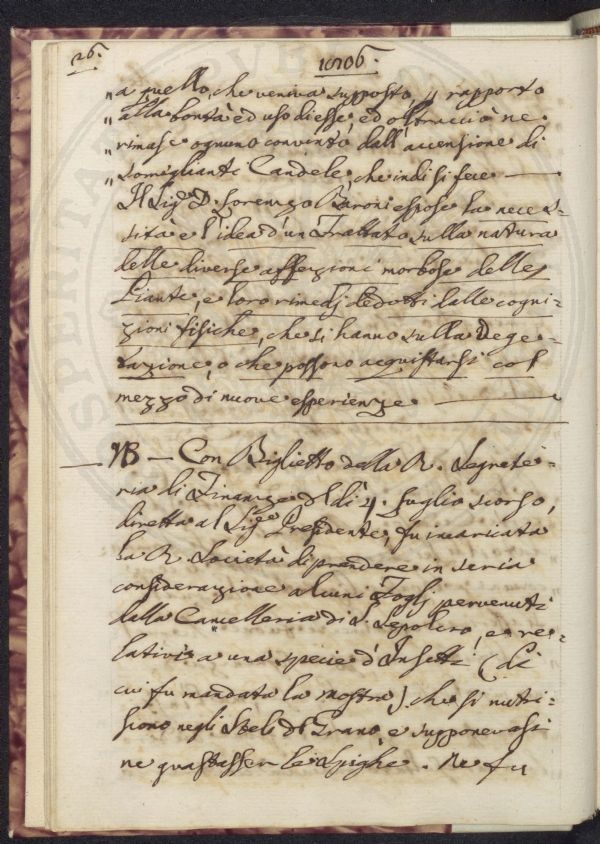 26.
1806.
„ a quello, che veniva supposto p rapporto
„ alla bontà ed uso di esse, ed ostracciò ne
„ rimase ognuno convinto dall'accensione di
„ somiglianti Candele, che indi si fece —
Il Sig.e D. Lorenzo Baroni espose la neces-
sità e l'idea d'un Trattato sulla natura
delle diverse affezioni morbose delle
Piante, e loro rimedj dedotti dalle cogni-
zioni fisiche, che si hanno sulla Vege-
tazione, o che possono acquistarsi col
mezzo di nuove esperienze —
— NB — Con Biglietto della R. Segrete-
ria di Finanze del dì 4. Luglio scorso,
diretta al Sig.e Presidente, fu incaricata
la R. Società di prendere in seria
considerazione alcuni Foglj pervenuti
dalla Cancelleria di S. Sepolcro, e re-
lativi a una specie d'Insetti (di
cui fu mandata la mostra) che si nutri-
scono negli Steli del Grano, e supponevasi
ne guastasser le Spighe. Ne fu